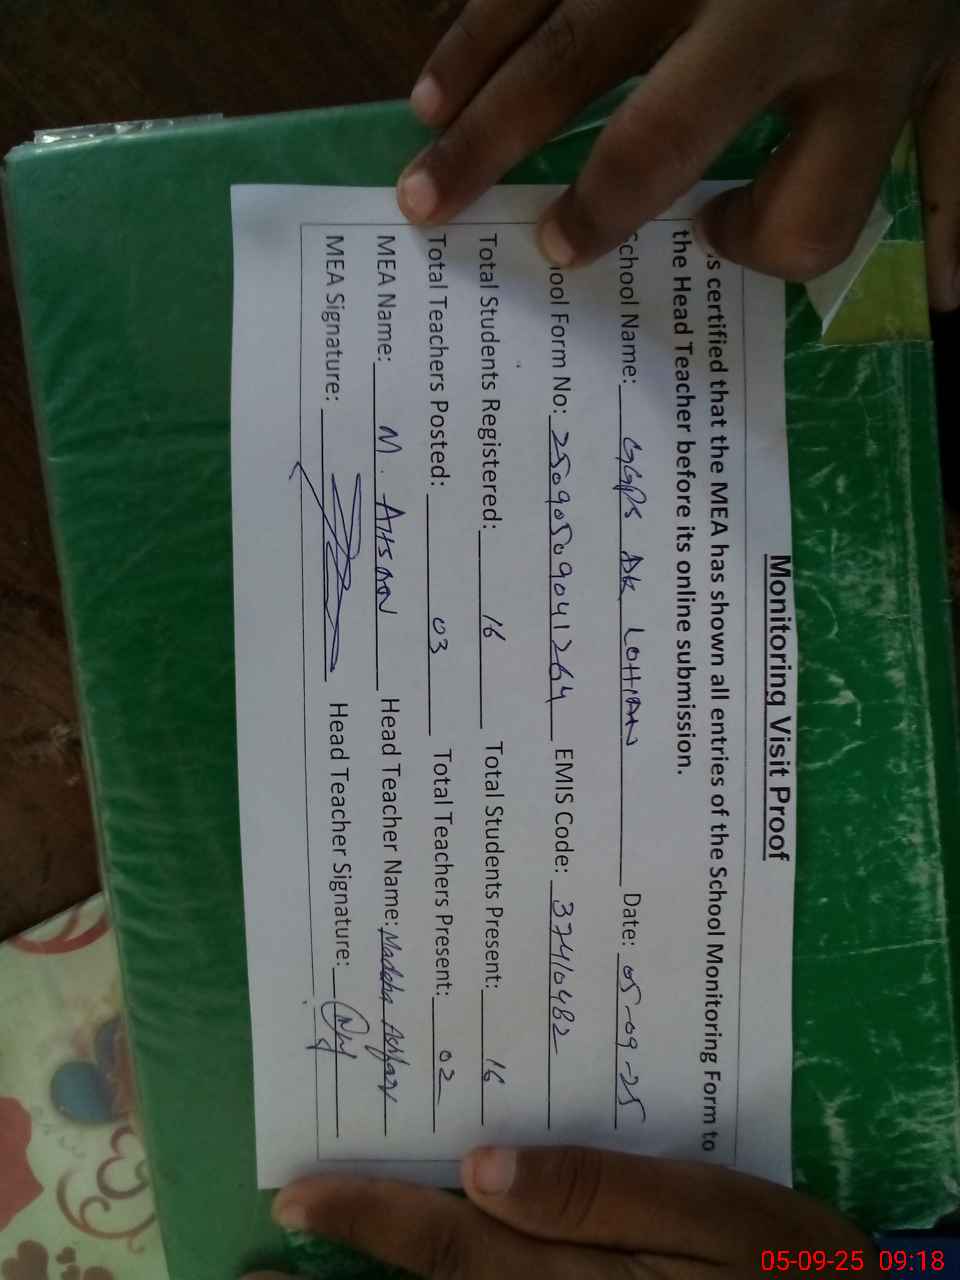 Monitoring Visit Proof
is certified that the MEA has shown all entries of the School Monitoring Form to
the Head Teacher before its online submission.
School Name: GGPS DK LOHIAN Date: 05-09-25
ool Form No: 25090509041264 EMIS Code: 37410482
Total Students Registered: 16 Total Students Present: 16
Total Teachers Posted: 03 Total Teachers Present: 02
MEA Name: M. AHSAN Head Teacher Name: Madeha Ashfaq
MEA Signature: Head Teacher Signature:
05-09-25 09:18